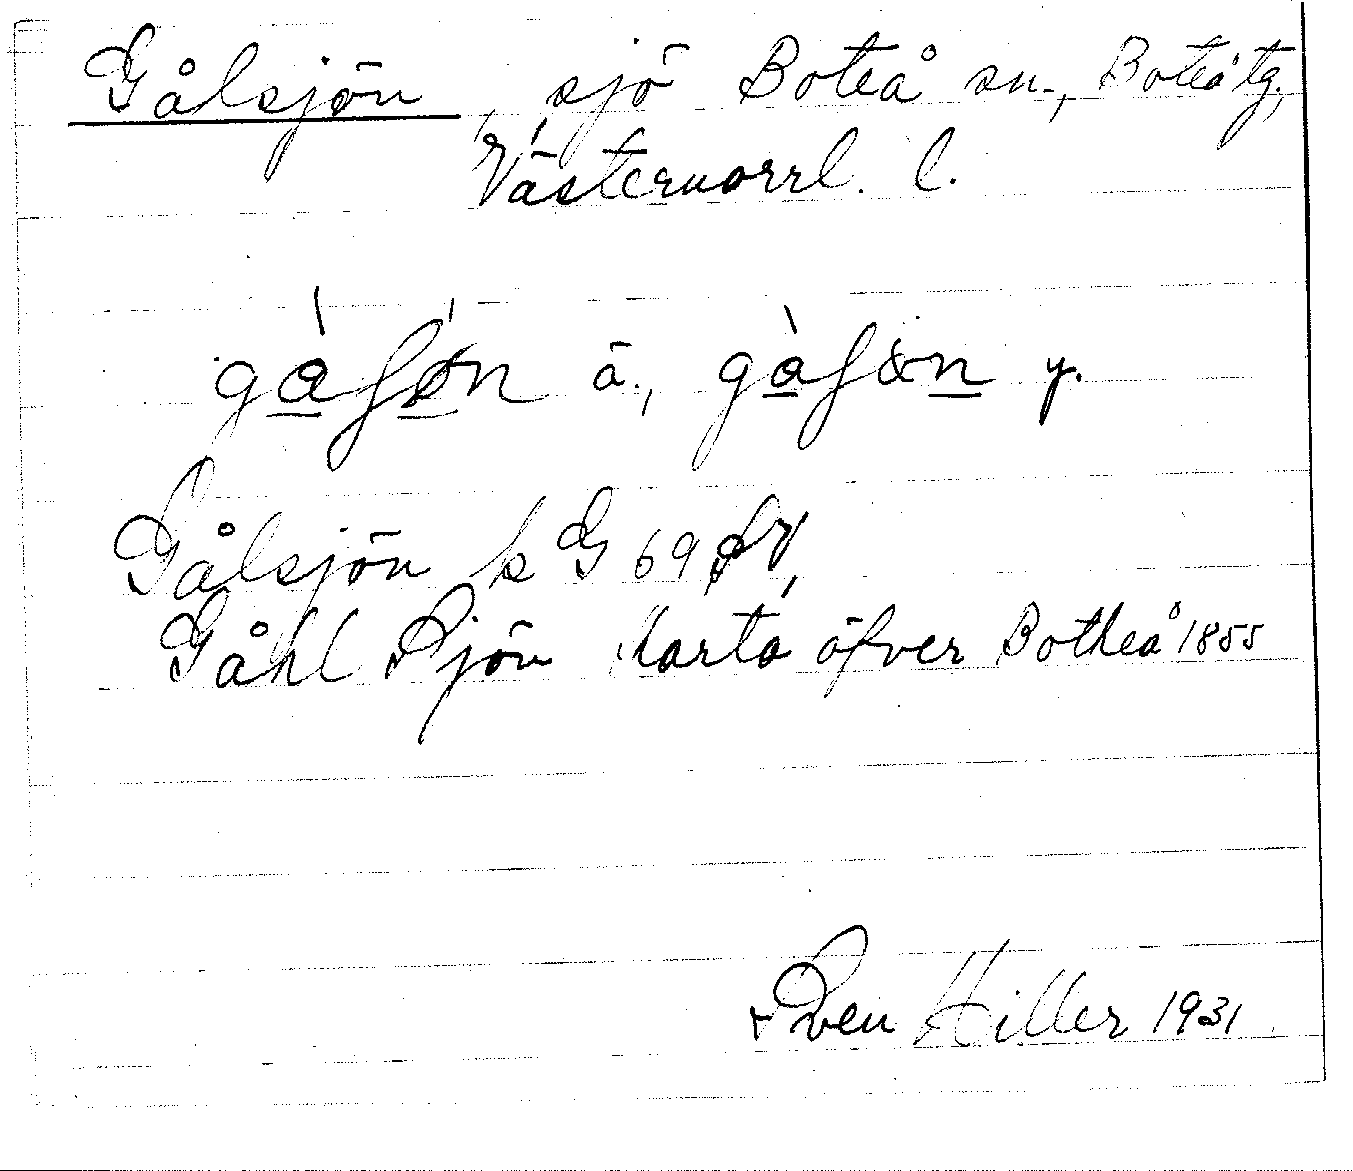 Gålsjön, sjö Boteå sn., Boteå tg,
Västernorrl. l.
gàʃön ä., gàʃön y.
Gålsjön k G 69 SV,
Gåhl Sjön Karta öfver Botheå 1855
Sven Hiller 1931